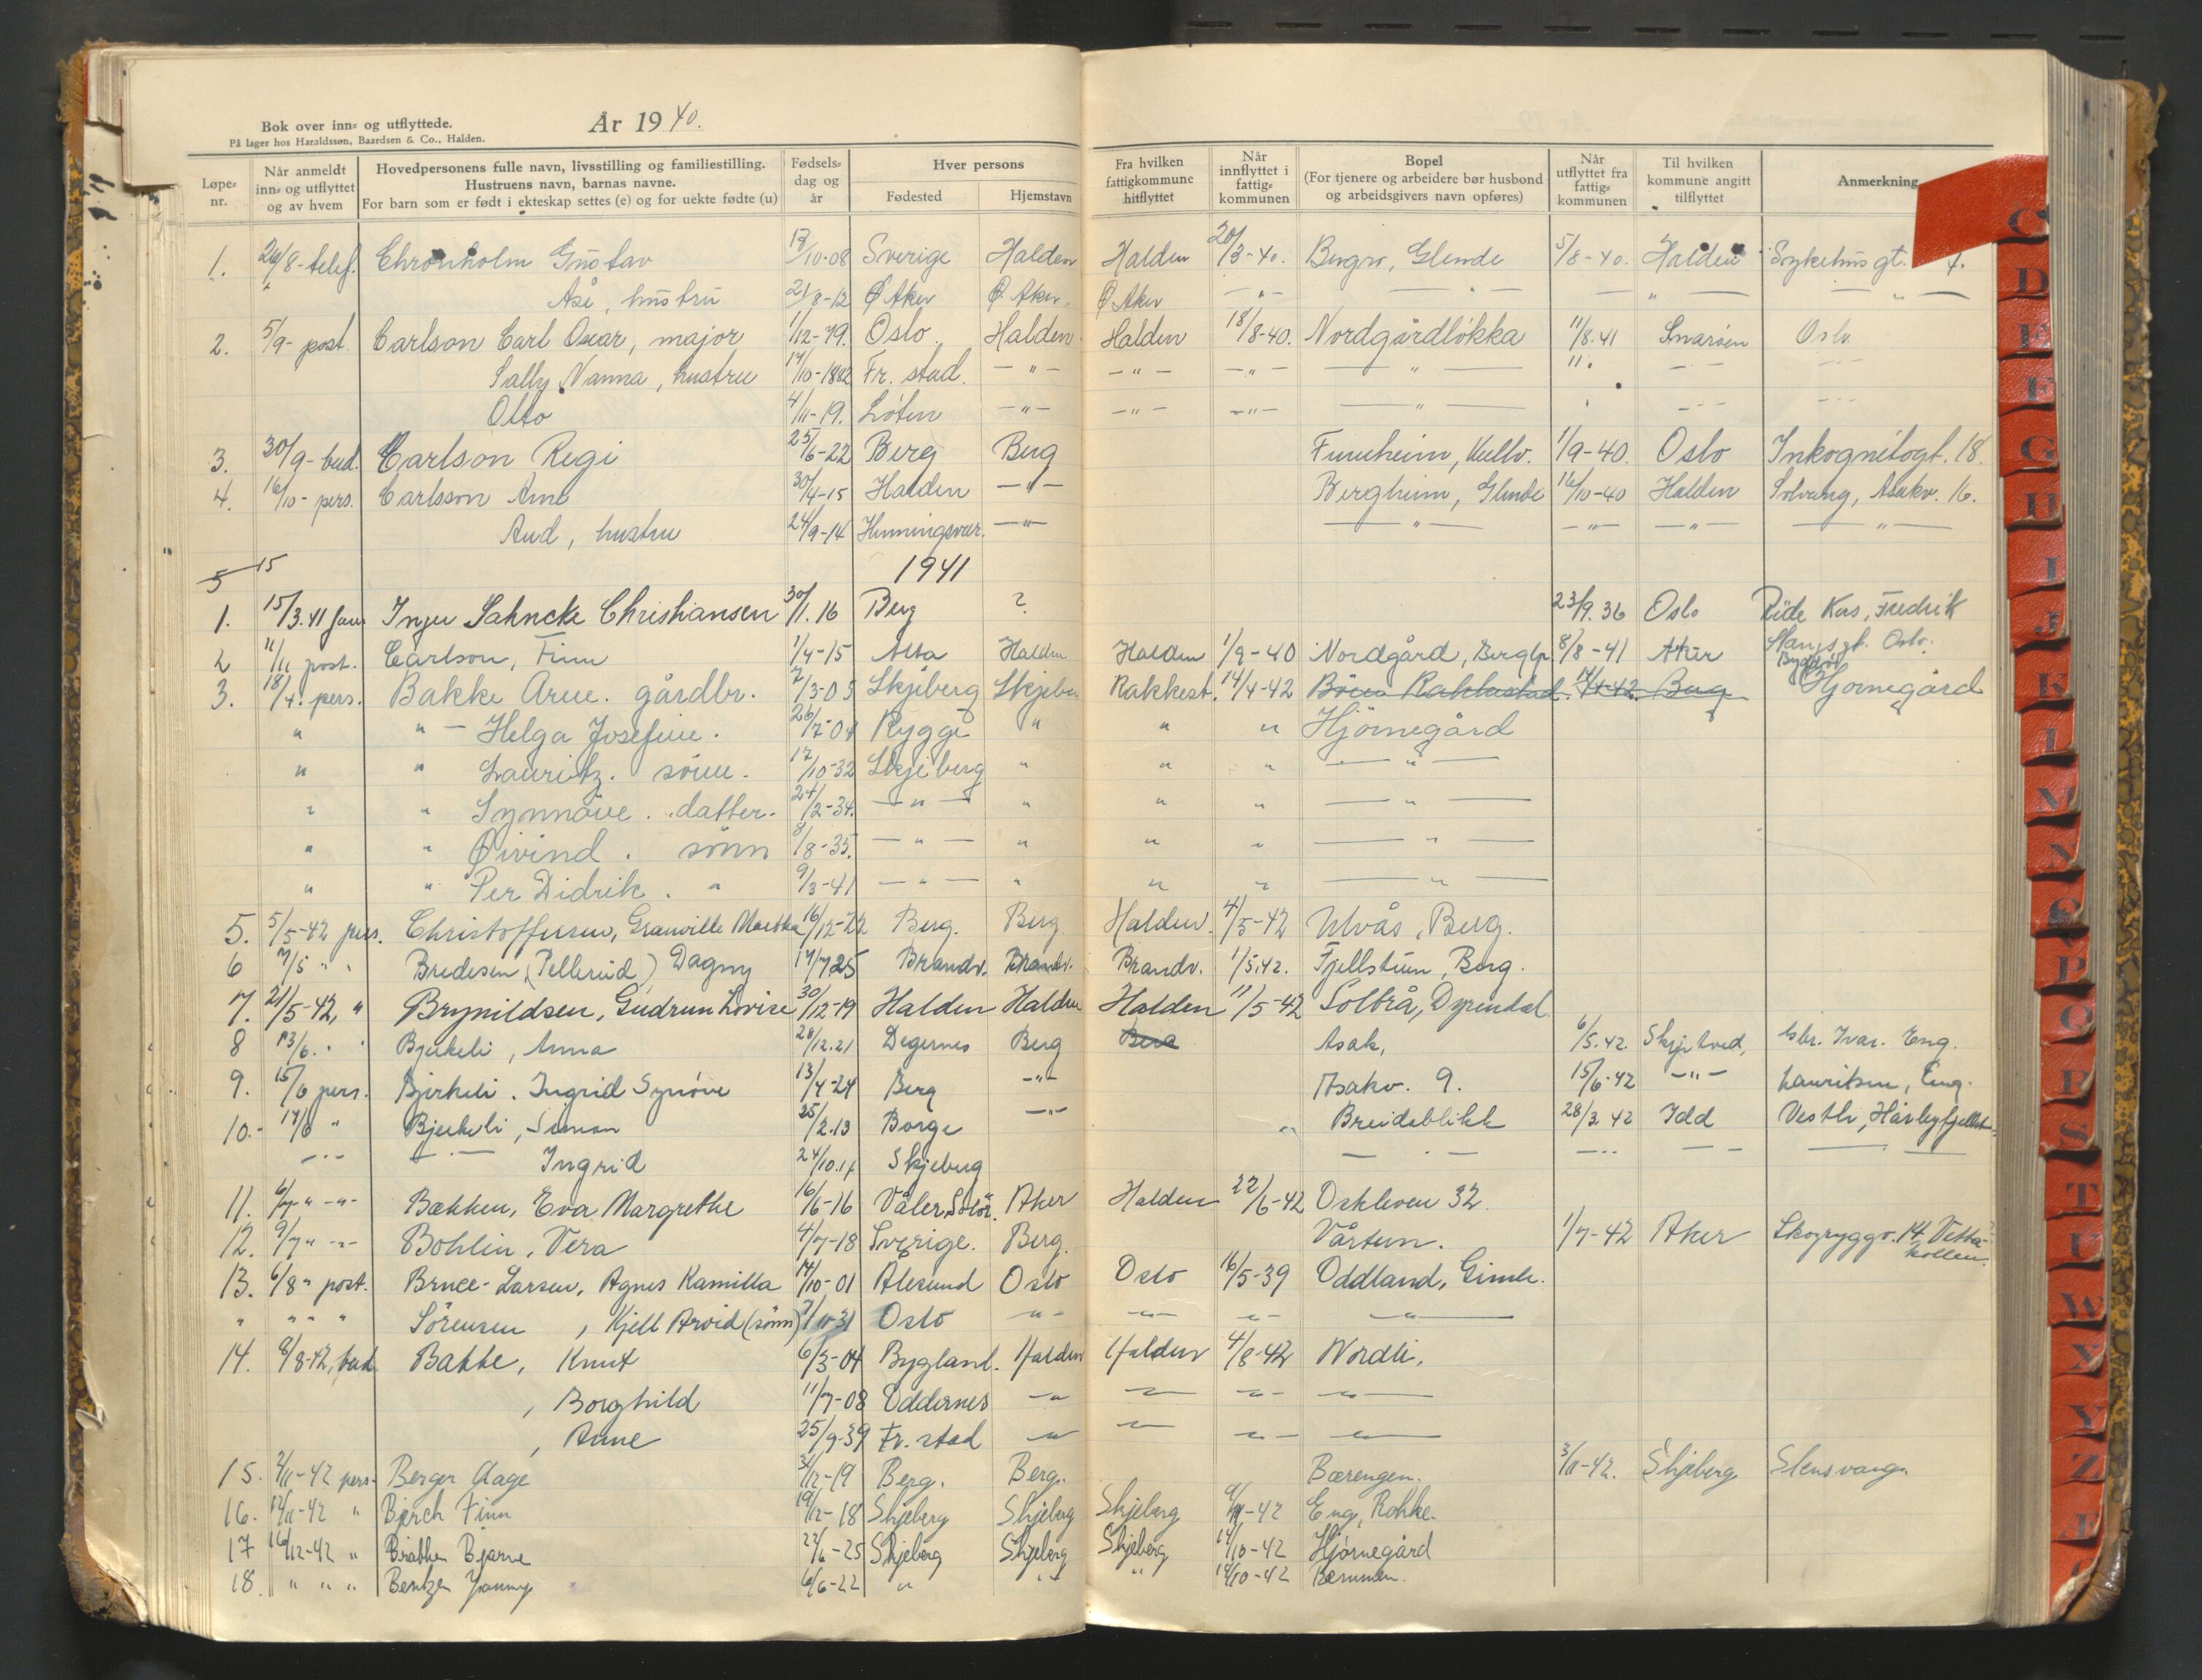 Bok over inn- og utflyttede.
På lager hos Haraldssøn, Baardsen & Co., Halden.
År 1940.
Løpe-nr.
Når anmeldt inn- og utflyttet og av hvem
Hovedpersonens fulle navn, livsstilling og familiestilling. Hustruens navn, barnas navne. For barn som er født i ekteskap settes (e) og for uekte fødte (u)
Fødsels-dag og år
Hver persons
Fødested
Hjemstavn
Fra hvilken fattigkommune hitflyttet
Når innflyttet i fattig-kommunen
Bopel (For tjenere og arbeidere bør husbond og arbeidsgivers navn opføres)
Når utflyttet fra fattig-kommunen
Til hvilken kommune angitt tilflyttet
Anmerkning
1. 26/8- telef. Chronholm Gustav 18/10-08 Sverige Halden Halden 20/3-40. Bergro, Glende 5/8-40. Halden Sykehusgt. 7.
Åse, hustru 21/8-12 Ø Aker Ø. Aker. Ø Aker — " — — " — — " — — " —
2. 5/9- post. Carlson Carl Oscar, major 1/12-79. Oslo. Halden. Halden 18/8-40. Nordgårdløkka 11/8.41 Snarøen Oslo
Sally Nanna, hustru 14/10-1882 Fr. stad. — " — — " — — " — — " — 11.
Otto 4/11-19. Løten — " — — " — — " — — " —
3. 30/9- bud. Carlson Regi 25/6-22 Berg Berg Furuheim, Kullv. 1/9-40. Oslo Inkognitogt. 18.
4. 16/10- pers. Carlsson Arne 30/4-15 Halden — " — Bergheim, Glende 16/10-40 Halden Solvang, Asakv. 16.
Aud, hustru 24/9-14 Henningsvær. — " — — " — — " — — " — — " —
5 15
1941
1. 15/3.41 Inger Jahncke Christiansen 30/1.16 Berg ? 23/9.36 Oslo Kus, Fredrik
Stangsgt. Oslo.
2 11/11 post. Carlson, Finn 1/4-15 Alta Halden Halden 1/9-40 Nordgård, Berglp. 8/8-41 Aker Bygdø
3. 18/4. pers. Bakke Arne. gårdbr. 7/3-05 Skjeberg Skjeberg Rakkest. 14/4-42 Böen Rakkestad. 14/4-42 Berg Hjørnegård
" " — Helga Josefine. 26/7-04 Rygge " " " Hjørnegård "
" " Lauritz. sønn. 17/10-32 Skjeberg " " " — " —
" " Synnøve. datter. 24/2-34. — " — " " " — " —
" " Øivind. sønn 8/8-35. — " — " " " — " —
" " Per Didrik. " 9/3-41 — " — " " " — " —
5. 5/5-42 pers. Christoffersen, Granville Martha 16/12-22 Berg. Berg. Halden. 4/5-42 Ulvås, Berg.
6 7/5 " " Bredesen (Pellerud) Dagny 17/7 25 Brandv. Brandv. Brandv. 1/5.42. Fjellstuen, Berg.
7. 21/5-42, " Brynildsen, Gudrun Lovise 30/12-19 Halden Halden Halden 11/5-42 Solbrå, Dyrendal.
8 13/6. " " Bjerkeli, Anna 28/12.21 Degernes Berg Berg Asak, 6/5.42. Skjetved, Gbr. Ivar. Eng.
9. 15/6 pers. Bjerkeli. Ingrid Synøve 13/4-24 Berg — " — Asakv. 9. 15/6-42 — " — Lauritsen, Eng.
10.- 17/6 " Bjerkeli, Simon 25/2.13 Borge — " — Breidablikk 28/3 42 Idd Vestli, Hårbyfjellet
— " — — " — Ingrid 24/10.17 Skjeberg — " — — " — — —
11. 6/7 " — " — Bækken, Eva Margrethe 16/6-16 Våler, Solør. Aker Halden 22/6-42 Oskleven 32.
12. 9/7 " — " — Bohlin, Vera 4/7-18 Sverige. Berg. Vårtun. 1/7-42 Aker Skogryggv. 14 Vettakollen.
13. 6/8 " post. Bruce-Larsen, Agnes Kamilla 14/10-01 Ålesund Oslo Oslo 16/5-39 Oddland, Gimle.
" " " " Sørensen, Kjell Arvid (sønn) 7/11-31 Oslo — " — — " — — " — — " —
14. 8/8-42, bud. Bakke, Knut 6/3-04 Bygland. Halden Halden 4/8-42 Nordli.
, Borghild 11/7-08 Oddernes — " — — " — — " — — " —
, Anne 25/9-39 Fr. stad — " — — " — — " — — " —
15. 2/11-42 pers. Berger Aage 31/12-19 Berg. Berg. Bærengen. 3/11-42. Skjeberg Stensvang.
16. 12/11-42 " Bjerch Finn 19/12-18 Skjeberg Skjeberg Skjeberg 9/11-42 Eng, Rokke.
17 16/12-42 " Bråthen Bjarne 22/6-25 Skjeberg Skjeberg Skjeberg 14/10-42 Hjørnegård
18. " " " Bentzen Jonny 6/6-22 " " " 14/10-42
C
D
E
F
G
H
I
J
K
L
M
N
O
P
Q
R
S
T
U
W
X
Y
Z
Æ